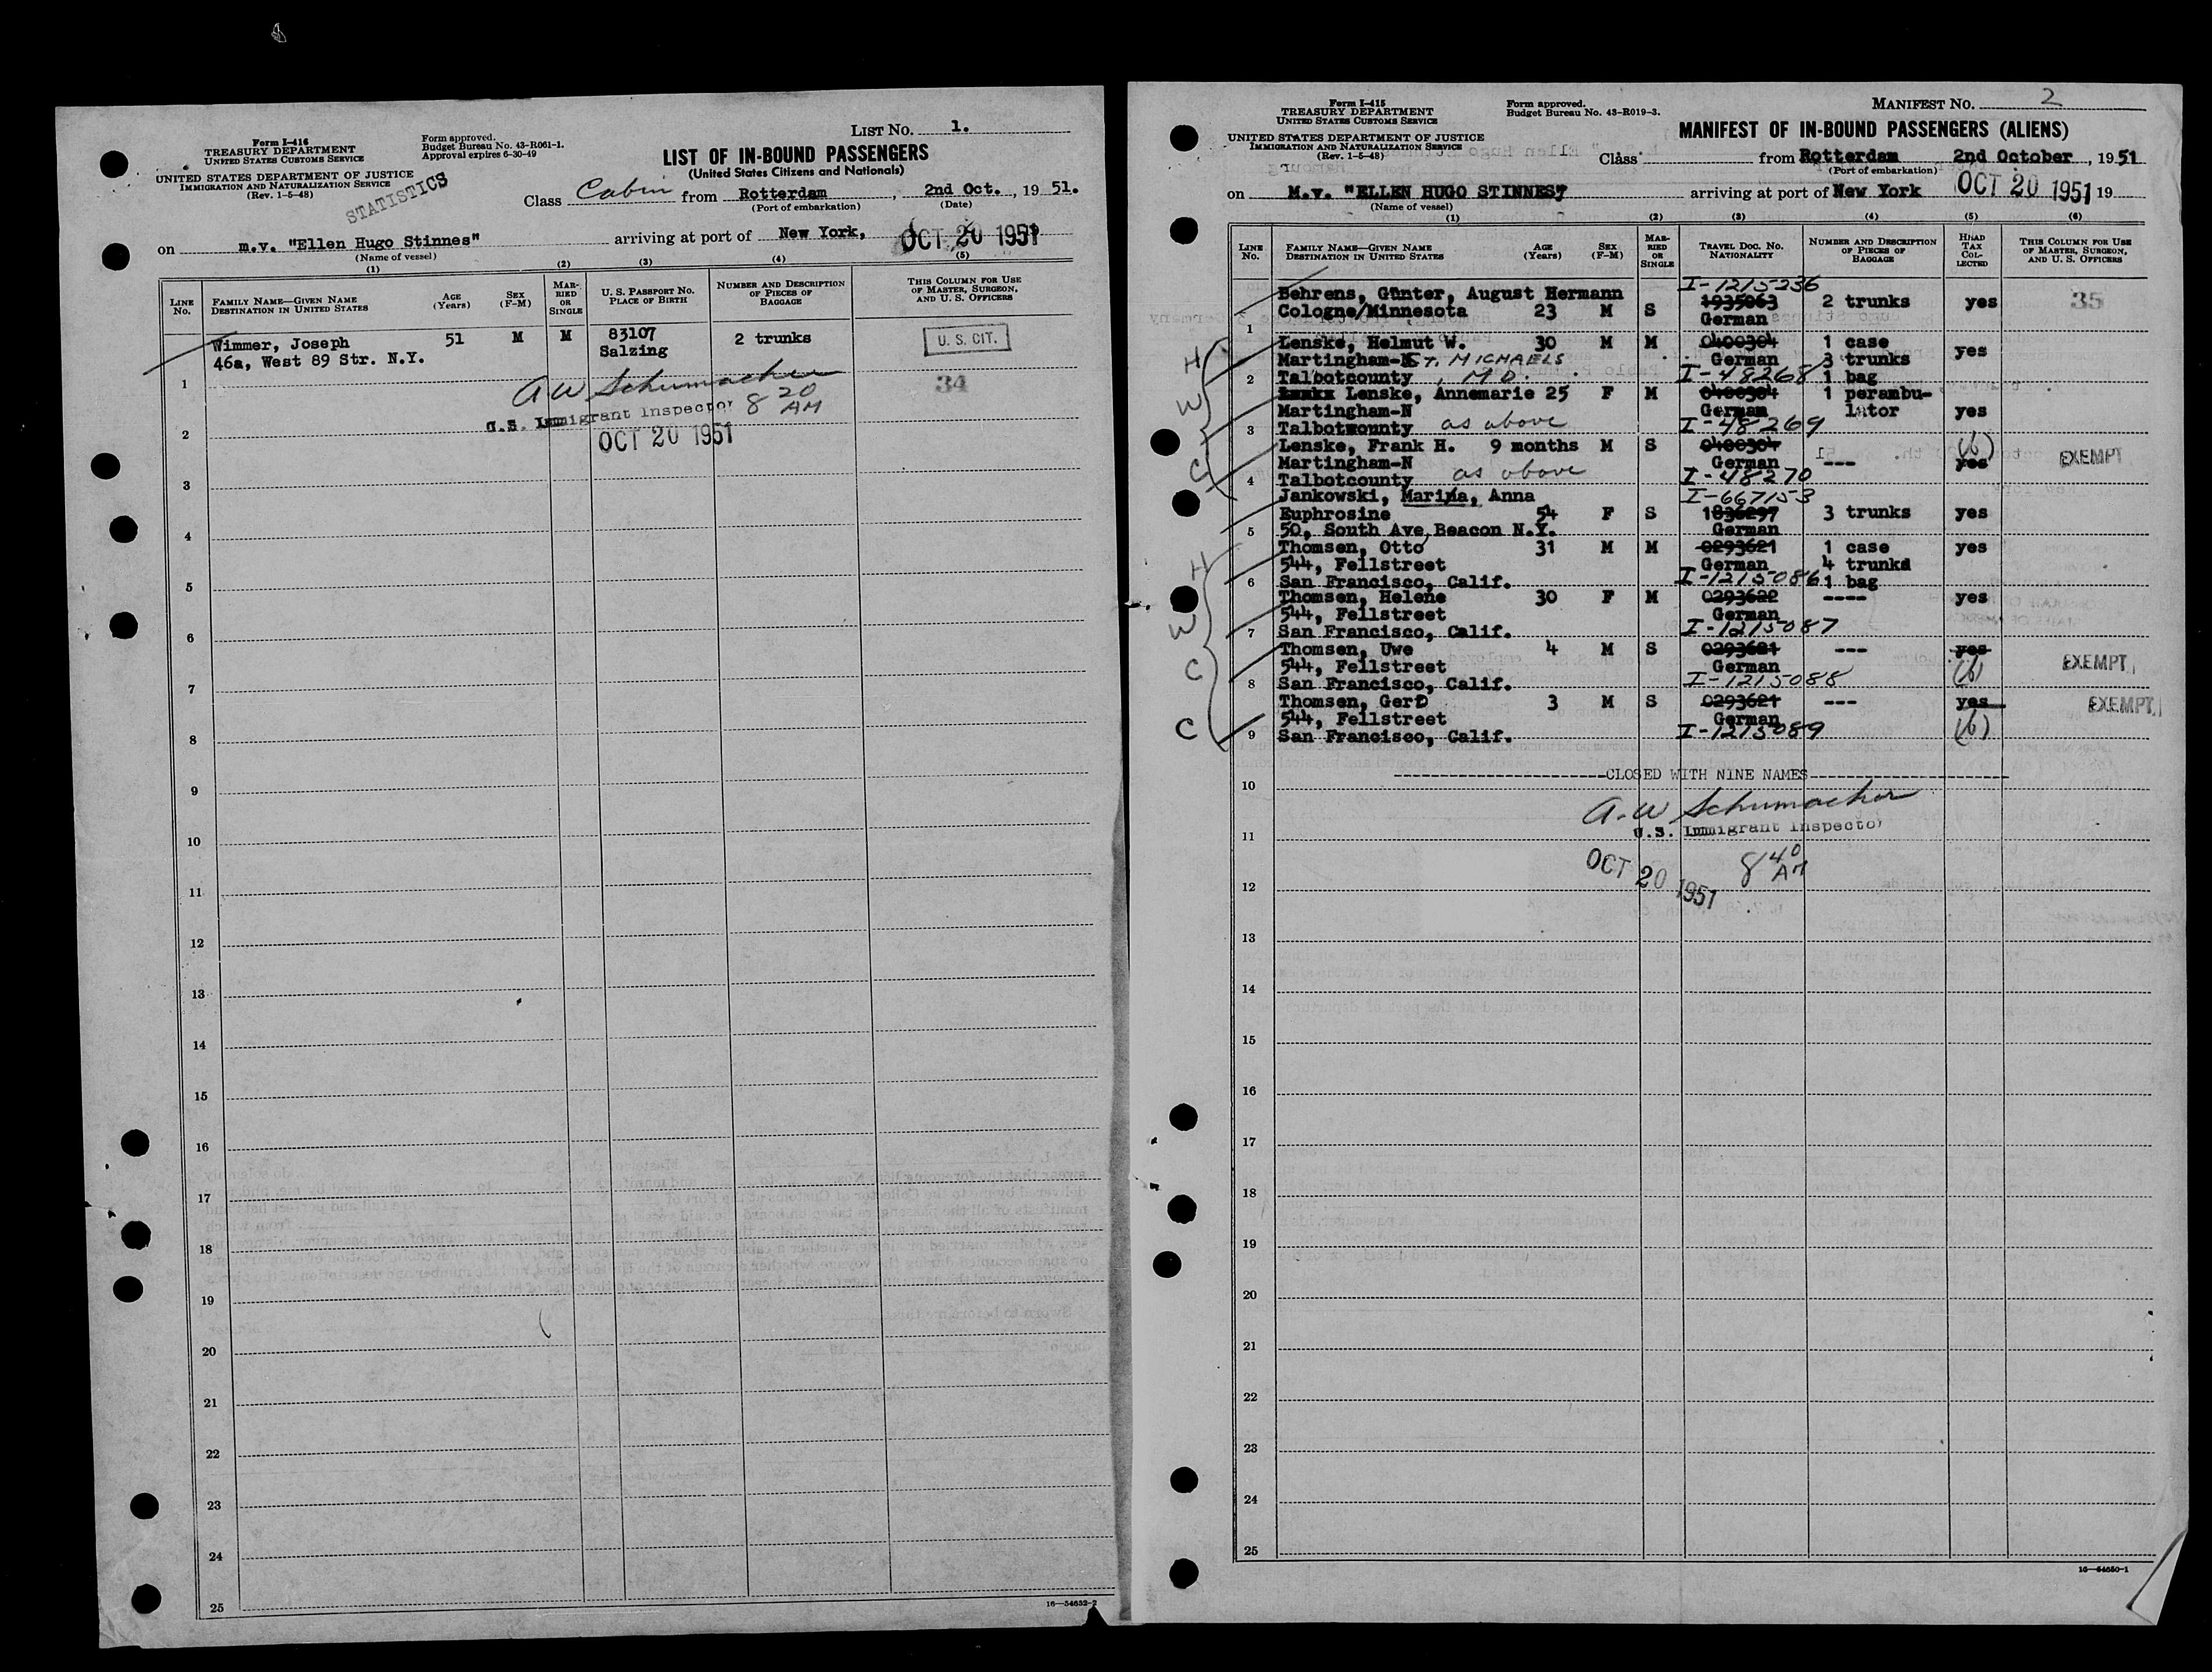 LIST No. 1.
Form I-416
TREASURY DEPARTMENT
UNITED STATES CUSTOMS SERVICE
UNITED STATES DEPARTMENT OF JUSTICE
IMMIGRATION AND NATURALIZATION SERVICE
(Rev. 1-5-48)
Form approved.
Budget Bureau No. 43-R061-1.
Approval expires 6-30-49
STATISTICS
LIST OF IN-BOUND PASSENGERS
(United States Citizens and Nationals)
Class Cabin from Rotterdam, 2nd Oct., 19 51.
(Port of embarkation) (Date)
on m.v. "Ellen Hugo Stinnes" arriving at port of New York, OCT 20 1951
(Name of vessel)
(1) (2) (3) (4) (5)
LINE No. FAMILY NAME—GIVEN NAME DESTINATION IN UNITED STATES AGE (Years) SEX (F-M) MARRIED OR SINGLE U. S. PASSPORT NO. PLACE OF BIRTH NUMBER AND DESCRIPTION OF PIECES OF BAGGAGE THIS COLUMN FOR USE OF MASTER, SURGEON, AND U. S. OFFICERS
Wimmer, Joseph 51 M M 83107 2 trunks U. S. CIT.
46a, West 89 Str. N.Y. Salzing
1 34
A W Schumacher
U.S. Immigrant Inspector 8 20 AM
2 OCT 20 1951
3
4
5
6
7
8
9
10
11
12
13
14
15
16
17
18
19
20
21
22
23
24
25
16—54652-2
Form I-415
TREASURY DEPARTMENT
UNITED STATES CUSTOMS SERVICE
UNITED STATES DEPARTMENT OF JUSTICE
IMMIGRATION AND NATURALIZATION SERVICE
(Rev. 1-5-48)
Form approved.
Budget Bureau No. 43-R019-3.
MANIFEST No. 2
MANIFEST OF IN-BOUND PASSENGERS (ALIENS)
Class from Rotterdam 2nd October, 1951
(Port of embarkation)
on M.v. "ELLEN HUGO STINNES" arriving at port of New York OCT 20 1951 19
(Name of vessel)
(1) (2) (3) (4) (5) (6)
LINE No. FAMILY NAME—GIVEN NAME DESTINATION IN UNITED STATES AGE (Years) SEX (F-M) MARRIED OR SINGLE TRAVEL DOC. NO. NATIONALITY NUMBER AND DESCRIPTION OF PIECES OF BAGGAGE HEAD TAX COLLECTED THIS COLUMN FOR USE OF MASTER, SURGEON, AND U. S. OFFICERS
I-1215236
Behrens, Günter, August Hermann 1935063 2 trunks yes 35
Cologne/Minnesota 23 M S German
1
H Lenske, Helmut W. 30 M M 0400304 1 case yes
Martingham-N ST. MICHAELS German 3 trunks
2 Talbotcounty, MD. I-48268 1 bag
W Lenske, Annemarie 25 F M 0400304 1 perambu-
Martingham-N German lator yes
3 Talbotcounty as above I-48269
C Lenske, Frank H. 9 months M S 0400304 --- yes (6) EXEMPT
Martingham-N as above German
4 Talbotcounty I-48270
Jankowski, Marina, Anna I-667153
Euphrosine 54 F S 1836297 3 trunks yes
5 50, South Ave. Beacon N.Y. German
H Thomsen, Otto 31 M M 0293621 1 case yes
544, Fellstreet German 4 trunks
6 San Francisco, Calif. I-1215086 1 bag
W Thomsen, Helene 30 F M 0293622 ---- yes
544, Fellstreet German
7 San Francisco, Calif. I-1215087
C Thomsen, Uwe 4 M S 0293621 --- yes (6) EXEMPT
544, Fellstreet German
8 San Francisco, Calif. I-1215088
C Thomsen, Gerd 3 M S 0293621 --- yes (6) EXEMPT
544, Fellstreet German
9 San Francisco, Calif. I-1215089
-----CLOSED WITH NINE NAMES-----
10
A.W Schumacher
11 U.S. Immigrant Inspector
OCT 20 1951 8 40 AM
12
13
14
15
16
17
18
19
20
21
22
23
24
25
16—54650-1